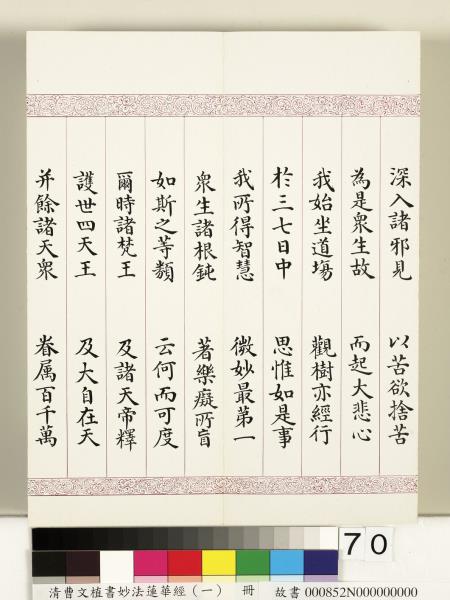 深入諸邪見　以苦欲捨苦
為是衆生故　而起大悲心
我始坐道場　觀樹亦經行
於三七日中　思惟如是事
我所得智慧　微妙最第一
衆生諸根鈍　著樂癡所盲
如斯之等類　云何而可度
爾時諸梵王　及諸天帝釋
護世四天王　及大自在天
并餘諸天衆　眷属百千萬
70
清曹文植書妙法蓮華經（一）　冊　故書 000852N000000000